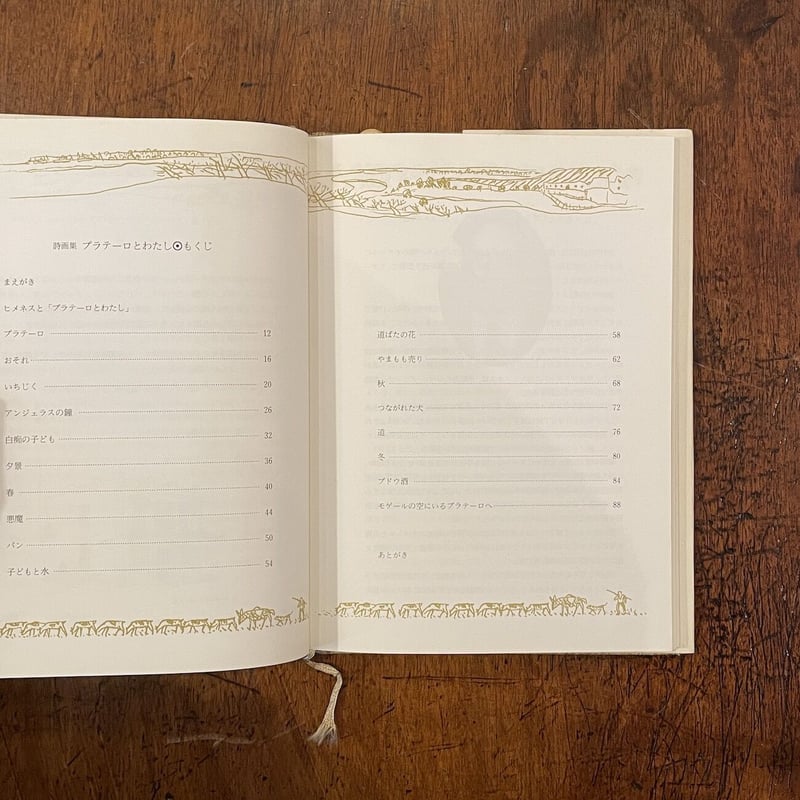 詩画集 プラテーロとわたし◉もくじ
まえがき
ヒメネスと「プラテーロとわたし」
プラテーロ 12
おそれ 16
いちじく 20
アンジェラスの鐘 26
白痴の子ども 32
夕景 36
春 40
悪魔 44
パン 50
子どもと水 54
道ばたの花 58
やまもも売り 62
秋 68
つながれた犬 72
道 76
冬 80
ブドウ酒 84
モゲールの空にいるプラテーロへ 88
あとがき